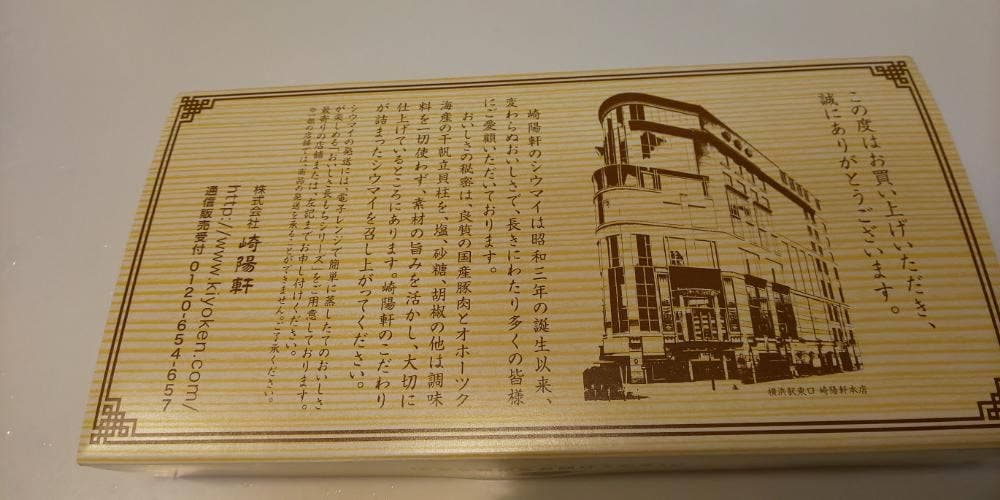 この度はお買い上げいただき、
誠にありがとうございます。
横浜駅東口 崎陽軒本店
崎陽軒のシウマイは昭和三年の誕生以来、
変わらぬおいしさで、長きにわたり多くの皆様
にご愛顧いただいております。
おいしさの秘密は、良質の国産豚肉とオホーツク
海産の干帆立貝柱を、塩、砂糖、胡椒の他は調味
料を一切使わず、素材の旨みを活かし、大切に
仕上げているところにあります。崎陽軒のこだわり
が詰まったシウマイを召し上がってください。
シウマイの発送には、電子レンジで簡単に蒸したてのおいしさ
が楽しめる「おいしさ長もちシリーズ」をご用意しております。
最寄りの店舗または、左記までお申し付けください。
※一部の店舗では、商品の発送を承ることができません。ご了承ください。
株式会社 崎陽軒
http://www.kiyoken.com/
通信販売受付 0120-654-657